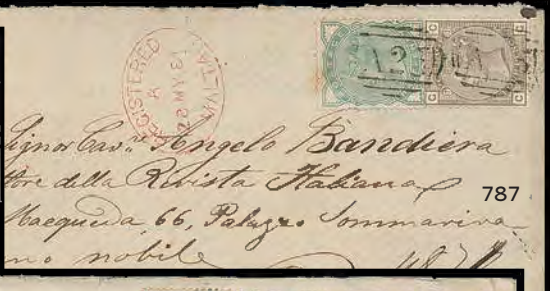 REGISTERED
MALTA
A
A25
Signor Cav.re Angelo Bandiera
ttore della Rivista Italiana
787
Macqueda, 66, Palazzo Sommariva
no nobile